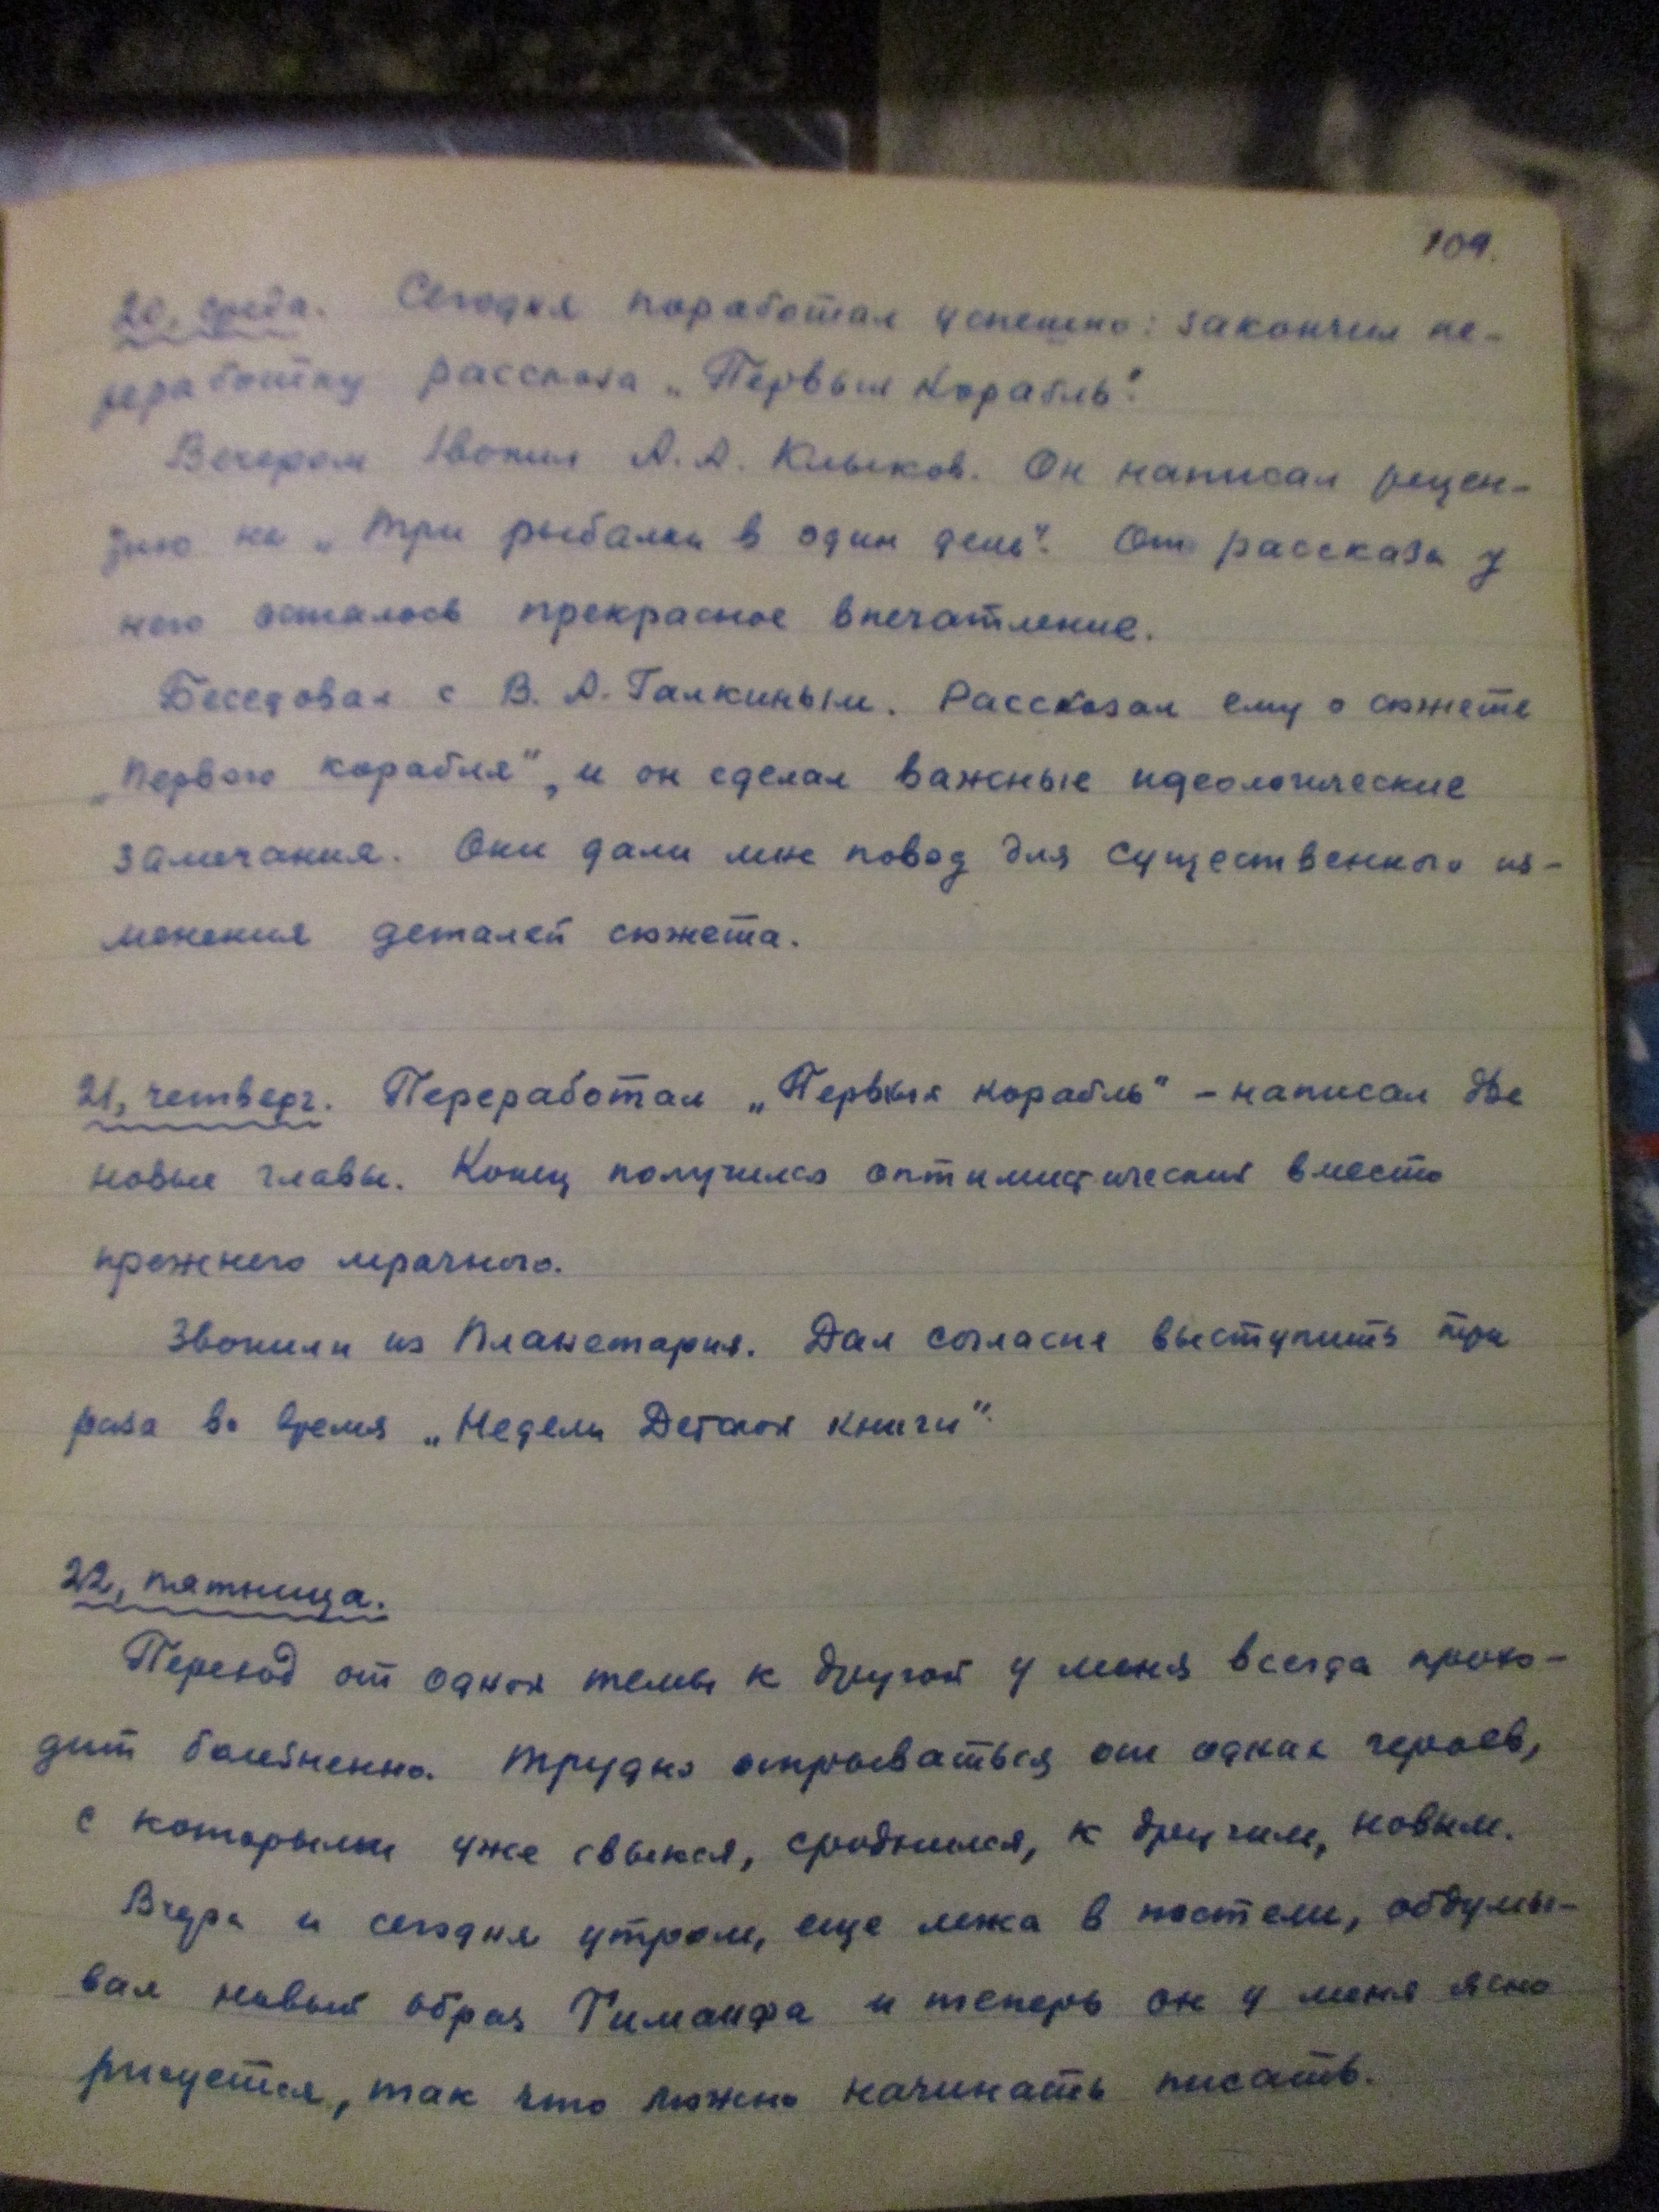 109.
20, среда. Сегодня поработал успешно: закончил пе-
реработку рассказа „Первый корабль".
Вечером звонил А. А. Клыков. Он написал рецен-
зию на „Три рыбалки в один день". От рассказа у
него осталось прекрасное впечатление.
Беседовал с В. А. Галкиным. Рассказал ему о сюжете
„Первого корабля", и он сделал важные идеологические
замечания. Они дали мне повод для существенного из-
менения деталей сюжета.
21, четверг. Переработал „Первый корабль" – написал две
новые главы. Конец получился оптимистический вместо
прежнего мрачного.
Звонили из Планетария. Дал согласие выступить три
раза во время „Недели Детской книги".
22, пятница.
Переход от одной темы к другой у меня всегда прохо-
дит болезненно. Трудно отрываться от одних героев,
с которыми уже свыкся, сроднился, к другим, новым.
Вчера и сегодня утром, еще лежа в постели, обдумы-
вал новый образ и теперь он у меня ясно
рисуется, так что можно начинать писать.